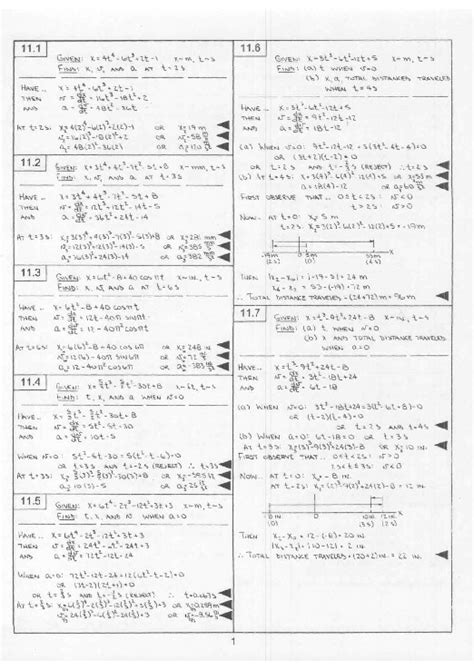 11.1
GIVEN: x=4t⁴-6t³+2t-1 x~m, t~s
FIND: x, v, AND a AT t=2s
HAVE.. x=4t⁴-6t³+2t-1
THEN v=dx/dt=16t³-18t²+2
AND a=dv/dt=48t²-36t
AT t=2s: x₂=4(2)⁴-6(2)³+2(2)-1 OR x₂=19 m
v₂=16(2)³-18(2)²+2 OR v₂=58 m/s
a₂=48(2)²-36(2) OR a₂=120 m/s²
11.2
GIVEN: x=3t⁴+4t³-7t²-5t+8 x~mm, t~s
FIND: x, v, AND a AT t=3s
HAVE.. x=3t⁴+4t³-7t²-5t+8
THEN v=dx/dt=12t³+12t²-14t-5
AND a=dv/dt=36t²+24t-14
AT t=3s: x₃=3(3)⁴+4(3)³-7(3)²-5(3)+8 OR x₃=281 mm
v₃=12(3)³+12(3)²-14(3)-5 OR v₃=385 mm/s
a₃=36(3)²+24(3)-14 OR a₃=382 mm/s²
11.3
GIVEN: x=6t²-8+40 cos πt x~in., t~s
FIND: x, v, AND a AT t=6s
HAVE.. x=6t²-8+40 cos πt
THEN v=dx/dt=12t-40π sin πt
AND a=dv/dt=12-40π² cos πt
AT t=6s: x₆=6(6)²-8+40 cos 6π OR x₆=248 in.
v₆=12(6)-40π sin 6π OR v₆=72 in./s
a₆=12-40π² cos 6π OR a₆=-383 in./s²
11.4
GIVEN: x=5/3t³-5/2t²-30t+8 x~ft, t~s
FIND: t, x, AND a WHEN v=0
HAVE.. x=5/3t³-5/2t²-30t+8
THEN v=dx/dt=5t²-5t-30
AND a=dv/dt=10t-5
WHEN v=0: 5t²-5t-30=5(t²-t-6)=0
OR t=3s AND t=-2s (REJECT) ∴ t=3s
AT t=3s: x₃=5/3(3)³-5/2(3)²-30(3)+8 OR x₃=-59.5 ft
a₃=10(3)-5 OR a₃=25 ft/s²
11.5
GIVEN: x=6t⁴-2t³-12t²+3t+3 x~m, t~s
FIND: t, x, AND v WHEN a=0
HAVE.. x=6t⁴-2t³-12t²+3t+3
THEN v=dx/dt=24t³-6t²-24t+3
AND a=dv/dt=72t²-12t-24
WHEN a=0: 72t²-12t-24=12(6t²-t-2)=0
OR (3t-2)(2t+1)=0
OR t=2/3s AND t=-1/2s (REJECT) ∴ t=0.667s
AT t=2/3s: x=6(2/3)⁴-2(2/3)³-12(2/3)²+3(2/3)+3 OR x=0.259m
v=24(2/3)³-6(2/3)²-24(2/3)+3 OR v=-8.56 m/s
11.6
GIVEN: x=3t³-6t²-12t+5 x~m, t~s
FIND: (a) t WHEN v=0
(b) x, a, TOTAL DISTANCES TRAVELED
WHEN t=4s
HAVE.. x=3t³-6t²-12t+5
THEN v=dx/dt=9t²-12t-12
AND a=dv/dt=18t-12
(a) WHEN v=0: 9t²-12t-12=3(3t²-4t-4)=0
OR (3t+2)(t-2)=0
OR t=2s AND t=-2/3s (REJECT) ∴ t=2s
(b) AT t=4s: x₄=3(4)³-6(4)²-12(4)+5 OR x₄=53m
a₄=18(4)-12 OR a₄=60 m/s²
FIRST OBSERVE THAT.. 0≤t<2s: v<0
t>2s: v>0
NOW.. AT t=0: x₀=5 m
t=2s: x₂=3(2)³-6(2)²-12(2)+5=-19 m
-19m 0 5m 53m x
(2s) (0) (4s)
THEN |x₂-x₀|=|-19-5|=24 m
x₄-x₂=53-(-19)=72 m
∴ TOTAL DISTANCE TRAVELED=(24+72)m=96 m
11.7
GIVEN: x=t³-9t²+24t-8 x~in., t~s
FIND: (a) t WHEN v=0
(b) x AND TOTAL DISTANCE TRAVELED
WHEN a=0
HAVE.. x=t³-9t²+24t-8
THEN v=dx/dt=3t²-18t+24
AND a=dv/dt=6t-18
(a) WHEN v=0: 3t²-18t+24=3(t²-6t+8)=0
OR (t-2)(t-4)=0
OR t=2s AND t=4s
(b) WHEN a=0: 6t-18=0 OR t=3s
AT t=3s: x₃=(3)³-9(3)²+24(3)-8 OR x₃=10 in.
FIRST OBSERVE THAT.. 0≤t<2s: v>0
2s<t≤3s: v<0
NOW.. AT t=0: x₀=-8 in.
AT t=2s: x₂=(2)³-9(2)²+24(2)-8=12 in.
-8 in. 0 10 in. 12 in. x
(0) (3s) (2s)
THEN x₂-x₀=12-(-8)=20 in.
|x₃-x₂|=|10-12|=2 in.
∴ TOTAL DISTANCE TRAVELED=(20+2)in.=22 in.
1